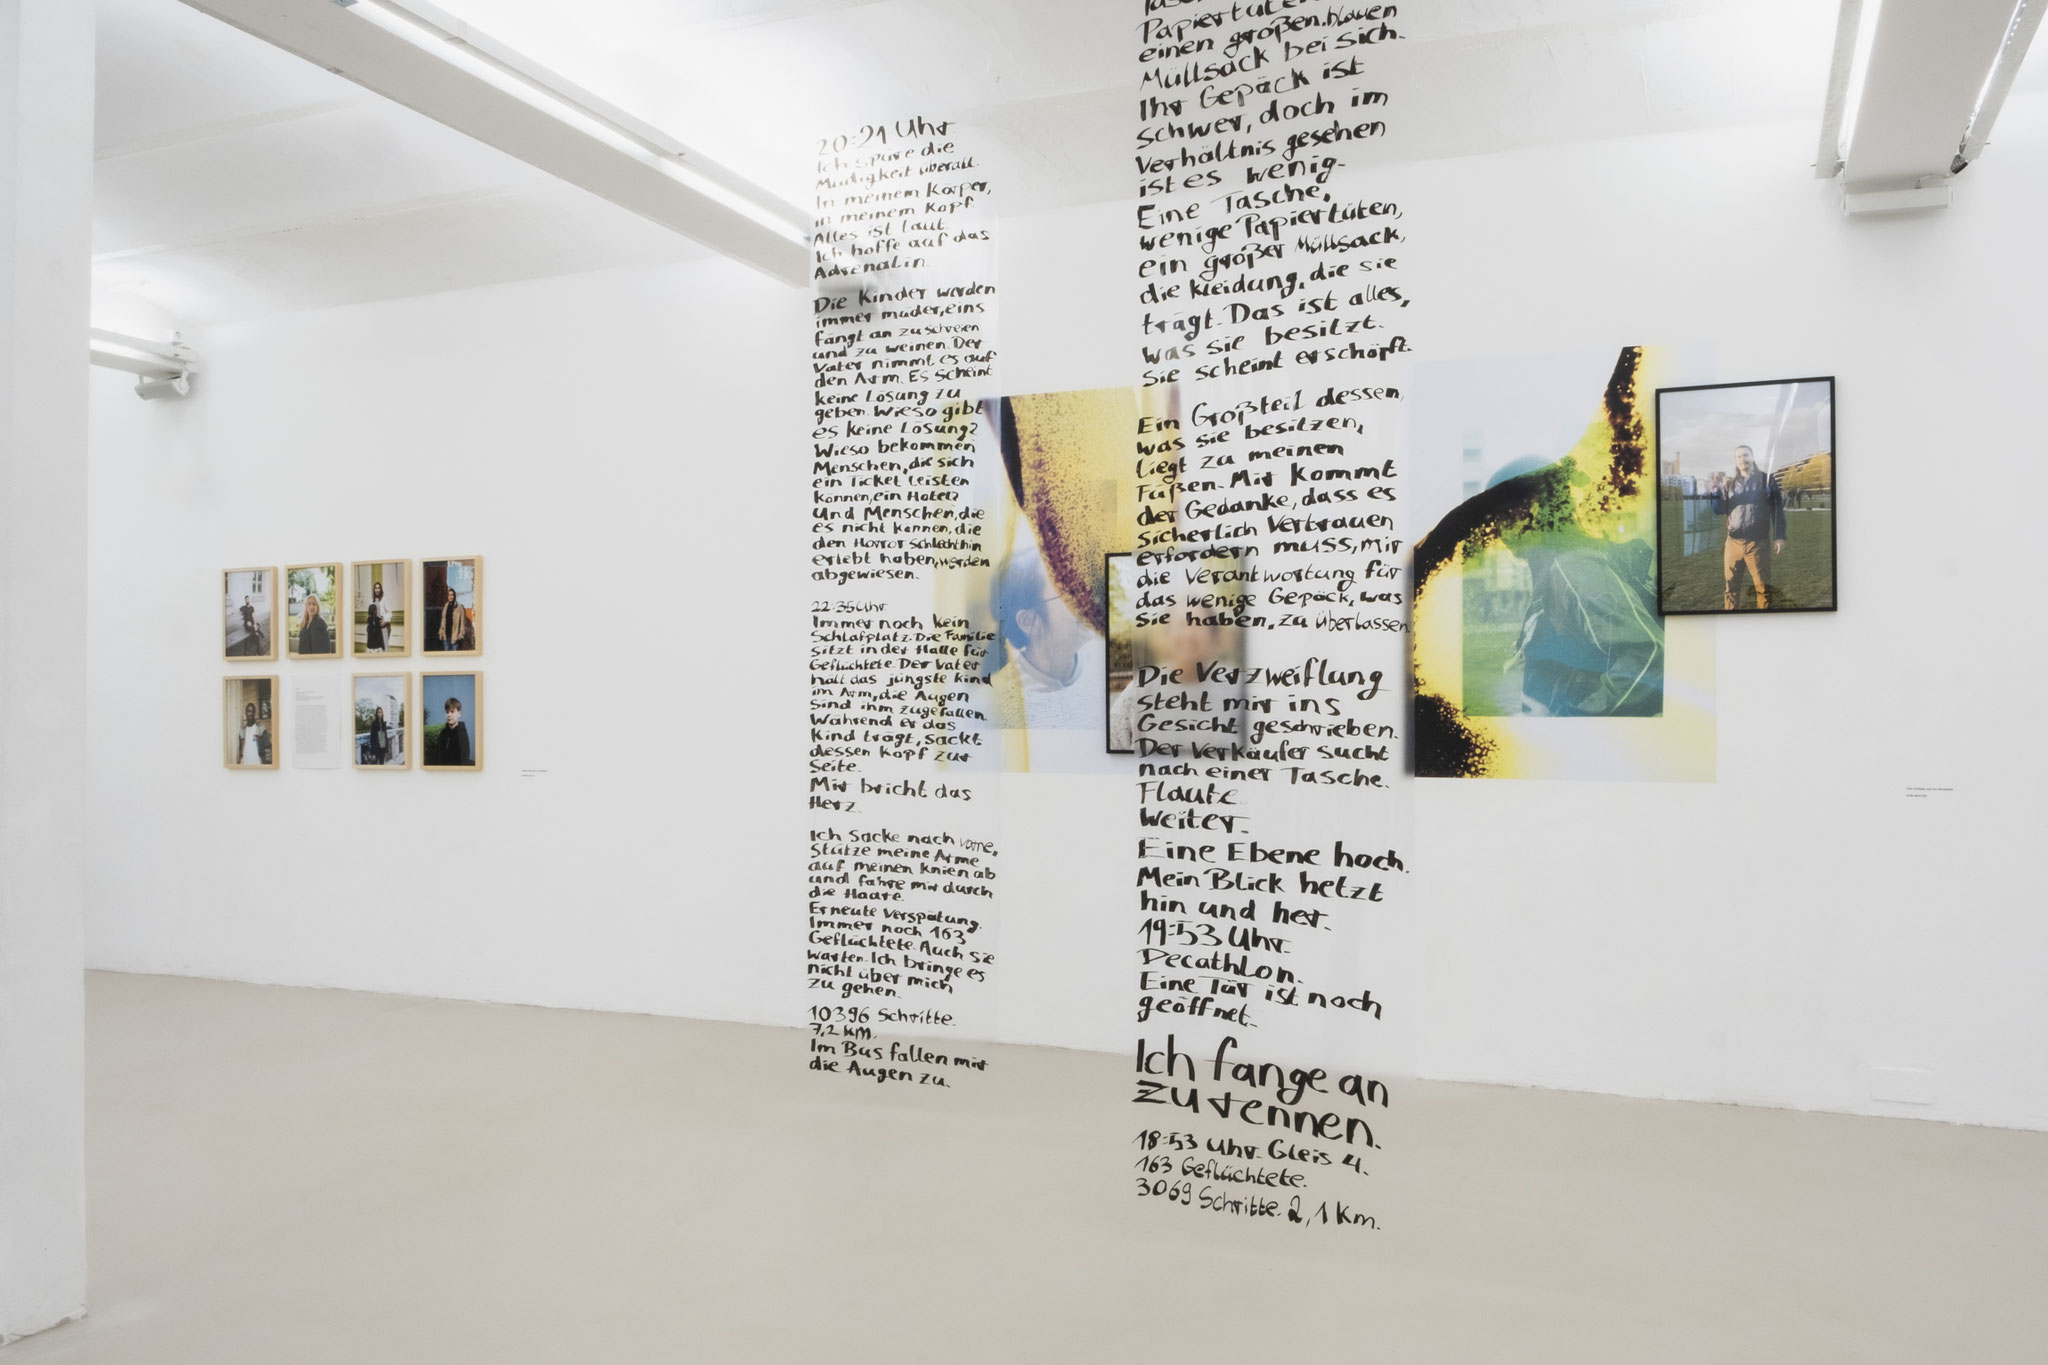 20:21 Uhr.
Ich spüre die
Müdigkeit überall.
In meinem Körper,
in meinem Kopf.
Alles ist laut.
Ich hoffe auf das
Adrenalin.
Die Kinder werden
immer müder, eins
fängt an zu schreien
und zu weinen. Der
Vater nimmt es auf
den Arm. Es scheint
keine Lösung zu
geben. Wieso gibt
es keine Lösung?
Wieso bekommen
Menschen, die sich
ein Ticket leisten
können, ein Hotel?
Und Menschen, die
es nicht können, die
den Horror schlechthin
erlebt haben, werden
abgewiesen.
22:35 Uhr
Immer noch kein
Schlafplatz. Die Familie
sitzt in der Halle für
Geflüchtete. Der Vater
hält das jüngste Kind
im Arm, die Augen
sind ihm zugefallen.
Während er das
Kind trägt, sackt
dessen Kopf zur
Seite.
Mir bricht das
Herz.
Ich sacke nach vorne,
stütze meine Arme
auf meinen Knien ab
und fahre mir durch
die Haare.
Erneute Verspätung.
Immer noch 163
Geflüchtete. Auch sie
warten. Ich bringe es
nicht über mich
zu gehen.
10396 Schritte.
7,2 km.
Im Bus fallen mir
die Augen zu.
Papiertüten
einen großen, blauen
Müllsack bei sich.
Ihr Gepäck ist
schwer, doch im
Verhältnis gesehen
ist es wenig.
Eine Tasche,
wenige Papiertüten,
ein großer Müllsack,
die Kleidung, die sie
trägt. Das ist alles,
was sie besitzt.
Sie scheint erschöpft.
Ein Großteil dessen,
was sie besitzen,
liegt zu meinen
Füßen. Mir kommt
der Gedanke, dass es
sicherlich Vertrauen
erfordern muss, mir
die Verantwortung für
das wenige Gepäck, was
sie haben, zu überlassen.
Die Verzweiflung
steht mir ins
Gesicht geschrieben.
Der Verkäufer sucht
nach einer Tasche.
Flaute.
Weiter.
Eine Ebene hoch.
Mein Blick hetzt
hin und her.
19:53 Uhr.
Decathlon.
Eine Tür ist noch
geöffnet.
Ich fange an
zu rennen.
18:53 Uhr. Gleis 4.
163 Geflüchtete.
3069 Schritte. 2,1 km.